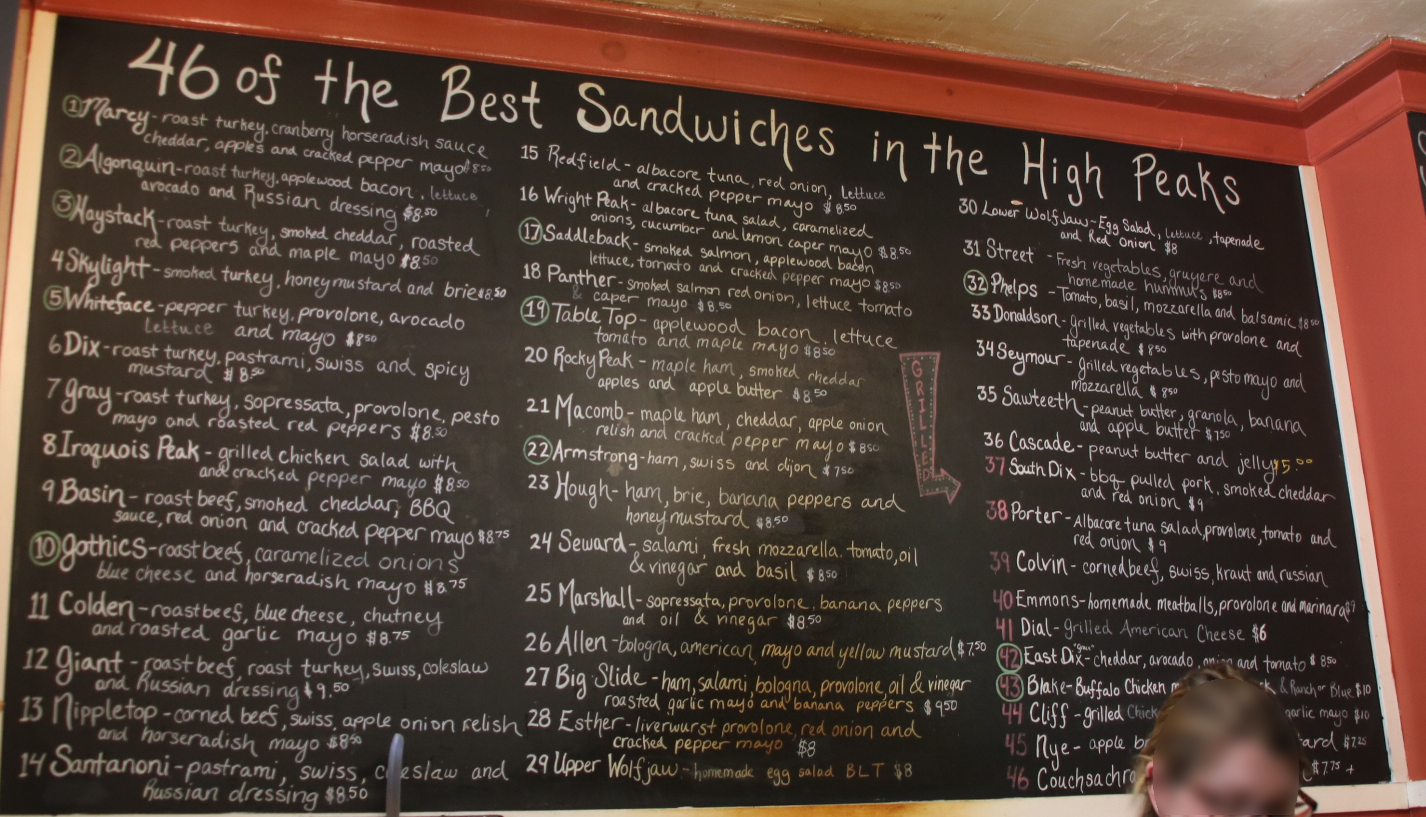 46 of the Best Sandwiches in the High Peaks
1 Marcy - roast turkey, cranberry horseradish sauce
cheddar, apples and cracked pepper mayo $8.50
2 Algonquin - roast turkey, applewood bacon, lettuce
avocado and Russian dressing $8.50
3 Haystack - roast turkey, smoked cheddar, roasted
red peppers and maple mayo $8.50
4 Skylight - smoked turkey, honey mustard and brie $8.50
5 Whiteface - pepper turkey, provolone, avocado
lettuce and mayo $8.50
6 Dix - roast turkey, pastrami, swiss and spicy
mustard $8.50
7 Gray - roast turkey, sopressata, provolone, pesto
mayo and roasted red peppers $8.50
8 Iroquois Peak - grilled chicken salad with
and cracked pepper mayo $8.50
9 Basin - roast beef, smoked cheddar, BBQ
sauce, red onion and cracked pepper mayo $8.75
10 Gothics - roast beef, caramelized onions
blue cheese and horseradish mayo $8.75
11 Colden - roast beef, blue cheese, chutney
and roasted garlic mayo $8.75
12 Giant - roast beef, roast turkey, swiss, coleslaw
and Russian dressing $9.50
13 Nippletop - corned beef, swiss, apple onion relish
and horseradish mayo $8.50
14 Santanoni - pastrami, swiss, coleslaw and
Russian dressing $8.50
15 Redfield - albacore tuna, red onion, lettuce
and cracked pepper mayo $8.50
16 Wright Peak - albacore tuna salad, caramelized
onions, cucumber and lemon caper mayo $8.50
17 Saddleback - smoked salmon, applewood bacon
lettuce, tomato and cracked pepper mayo $8.50
18 Panther - smoked salmon red onion, lettuce tomato
& caper mayo $8.50
19 Table Top - applewood bacon, lettuce
tomato and maple mayo $8.50
20 Rocky Peak - maple ham, smoked cheddar
apples and apple butter $8.50
21 Macomb - maple ham, cheddar, apple onion
relish and cracked pepper mayo $8.50
22 Armstrong - ham, swiss and dijon $7.50
23 Hough - ham, brie, banana peppers and
honey mustard $8.50
24 Seward - salami, fresh mozzarella, tomato, oil
& vinegar and basil $8.50
25 Marshall - sopressata, provolone, banana peppers
and oil & vinegar $8.50
26 Allen - bologna, american, mayo and yellow mustard $7.50
27 Big Slide - ham, salami, bologna, provolone, oil & vinegar
roasted garlic mayo and banana peppers $9.50
28 Esther - liverwurst provolone, red onion and
cracked pepper mayo $8
29 Upper Wolfjaw - homemade egg salad BLT $8
GRILLED
30 Lower Wolf Jaw - Egg Salad, lettuce, tapenade
and Red Onion $8
31 Street - Fresh vegetables, gruyere and
homemade hummus $8.50
32 Phelps - Tomato, basil, mozzarella and balsamic $8.50
33 Donaldson - grilled vegetables with provolone and
tapenade $8.50
34 Seymour - grilled vegetables, pesto mayo and
mozzarella $8.50
35 Sawteeth - peanut butter, granola, banana
and apple butter $7.50
36 Cascade - peanut butter and jelly $5.00
37 South Dix - bbq pulled pork, smoked cheddar
and red onion $9
38 Porter - Albacore tuna salad, provolone, tomato and
red onion $9
39 Colvin - corned beef, swiss, kraut and russian
40 Emmons - homemade meatballs, provolone and marinara $9
41 Dial - grilled American Cheese $6
42 East Dix - cheddar, avocado, onion and tomato $8.50
43 Blake - Buffalo Chicken & Ranch or Blue $10
44 Cliff - grilled garlic mayo $10
45 Nye - apple $7.25
46 $7.75 +